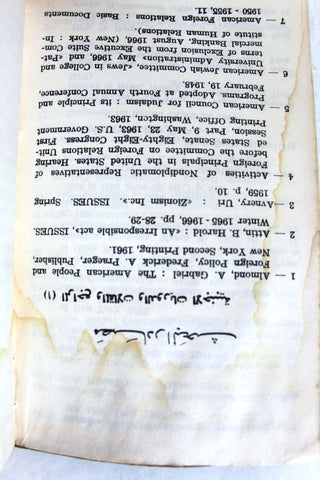 مصادر البحث
(١) المراجع والمقالات والدوريات الاجنبية
1 — Almond, A. Gabriel : The American People and
Foreign Policy, Frederick A. Praeger, Publisher,
New York, Second Printing, 1961.
2 — Attin, B. Harold : «An Irresponsible act», ISSUES,
Winter 1965 - 1966, pp. 28-29.
3 — Avnery, Uri : «Zionism Inc.», ISSUES, Spring
1959, p. 10.
4 — Activities of Nondiplomatic Representatives of
Foreign Principals in the United States. Hearing
before the Committee on Foreign Relations Unit-
ed States Senate, Eighty-Eight Congress. First
Session, Part 9, May 23, 1963, U.S. Government
Printing Office, Washington, 1963.
5 — American Council for Judaism : its Principle and
Programs. Adopted at Fourth Annual Conference,
February 19, 1948.
6 — American Jewish Committee, «Jews in College and
University Administration» May 1966, and «Pat-
terns of Exclusion from the Executive Suite Com-
mercial Banking, August 1966, (New York : In-
stitute of Human Relations).
7 — American Foreign Relations : Basic Documents
1950 - 1955, 11.